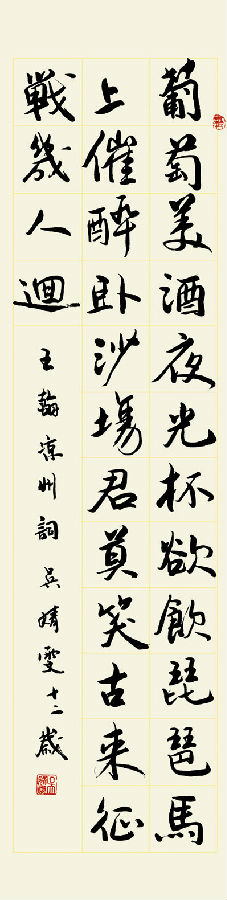 葡萄美酒夜光杯欲飲琵琶馬
上催醉卧沙場君莫笑古来征
戰幾人迴
王翰涼州詞 吳婧雯十二歲